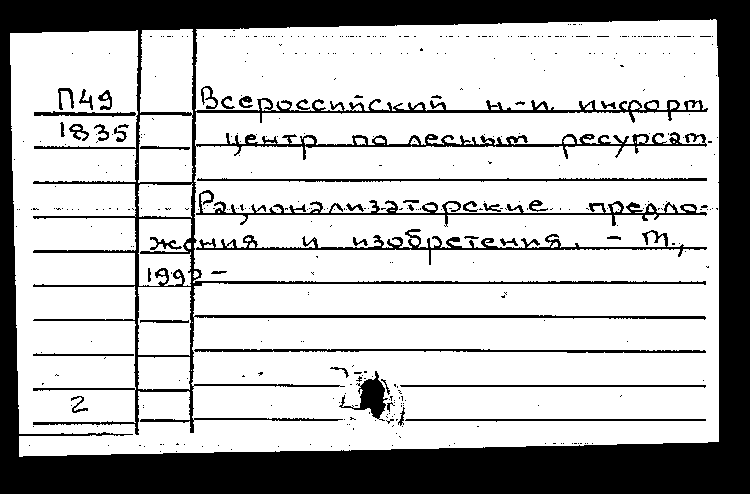 П49 Всероссийский н.-и. информ.
1835 центр по лесным ресурсам.
Рационализаторские предло-
жения и изобретения. - М.,
1992 -
2